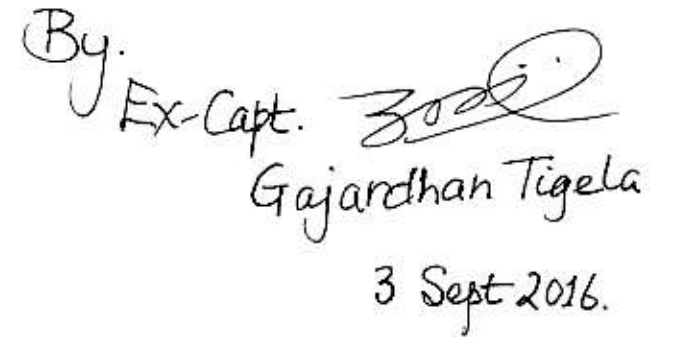 By.
Ex-Capt.
Gajardhan Tigela
3 Sept 2016.